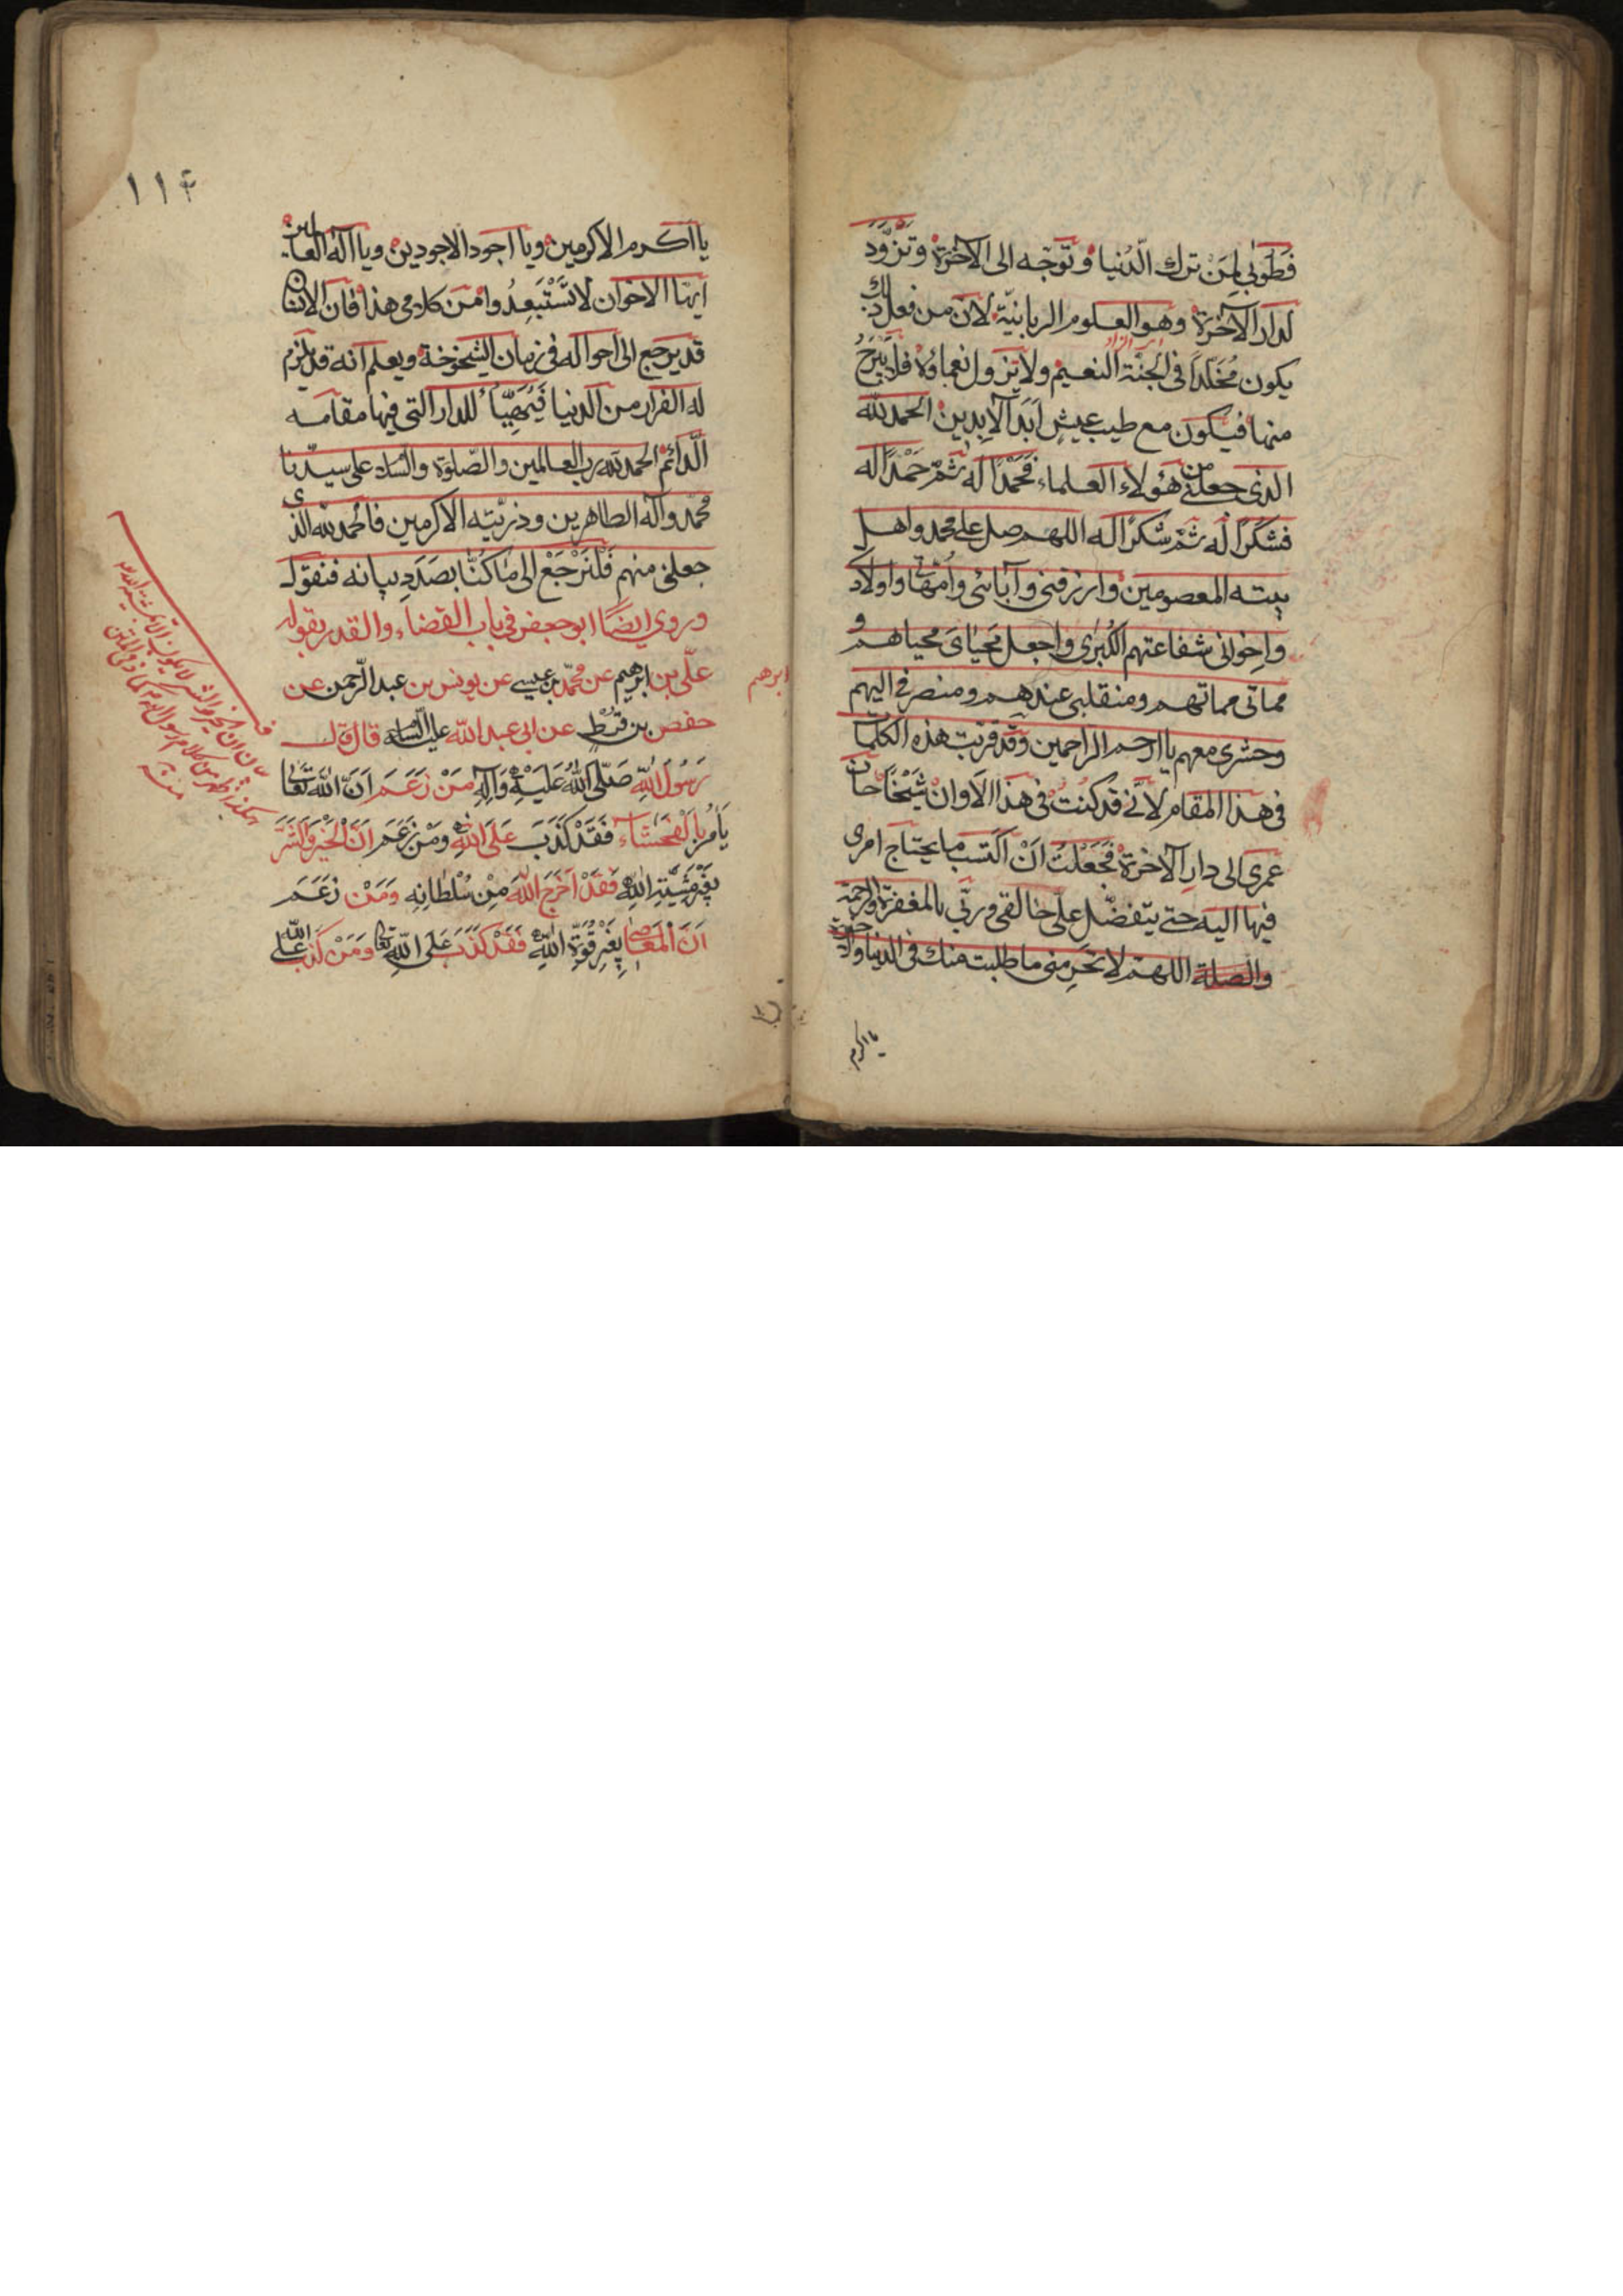 فَطُوبىٰ لِمَنْ ترك الدّنيا وتوجّه الى الآخرة وتَزَوَّدَ
لدار الآخرة وهو العلوم الربانيّة لان من فعل ذلك
يكون مُخَلّداً فى الجنّة النعيم ولا تزول نعماؤه فلا يَبْرَحُ
منها فيكون مع طيب عيش اَبَدَ الآبدين الحمد لله
الذى جعلنى من هؤلاء العلماء فَحَمْداً له ثمّ حَمْداً له
فشكراً له ثمّ شكراً له اللهم صل على محمد واهل
بيته المعصومين وارزقنى وآبائى وأمّهاتى واولادى
واخوانى شفاعتهم الكُبْرىٰ واجعل مَحْياىَ محياهم و
مماتى مماتهم ومنقلبى عندهم ومنصرفى اليهم
وحشرى معهم يا ارحم الراحمين وقد قربت هذه الكلمات
فى هذا المقام لانّى قد كنتُ فى هذا الاوان شَيْخاً حان
عمرى الى دار الآخرة فَجَعَلتُ اَنْ اكتسب ما يحتاج امرى
فيها اليه حتى يتفضّل علىّ خالقى وربّى بالمغفرة والرحمة
والصلة اللهم لا تحرمنى ما طلبت منك فى الدنيا والآخرة
يا اكرم
١١٤
يا اكرم الاكرمين ويا اجود الاجودين ويا آله العالمين
ايها الاخوان لا تَسْتَبعِدُوا من كلامى هذا فان الانسان
قد يرجع الى احواله فى زمان الشيخوخة ويعلم انه قد يلزم
له الفرار من الدنيا فَيُهَيِّأ للدار التى فيها مقامه
الدّائم الحمد لله رب العالمين والصّلوة والسّلام على سيدنا
محمّد وآله الطاهرين وذريّته الاكرمين فالحمد لله الذى
جعلنى منهم فَلْنَرْجَعْ الى ما كُنّا بصَدَدِ بيانه فنقول
وروى ايضاً ابو جعفر فى باب القضاء والقدر بقوله
علّى بن ابرهيم عن محمّد بن عيسى عن يونس بن عبد الرّحمن عن
ابرهيم
حفص بن قُرْط عن ابى عبد الله عليه السّلام قال قال
رَسُولُ اللهِ صَلَّى اللهُ عَلَيْهِ وَآلِهِ مَنْ زَعَمَ اَنَّ اللهَ تَعَالىٰ
يَأمُرُ بِالْفَحْشَاءِ فَقَدْ كَذَبَ عَلَى اللهِ وَمَنْ زَعَمَ اَنَّ الْخَيْرَ وَالشَّرَّ
بِغَيْرِ مَشِيَّةِ اللهِ فَقَدْ اَخْرَجَ اللهَ مِنْ سُلْطَانِهِ وَمَنْ زَعَمَ
اَنَّ الْمَعَاصِىَ بِغَيْرِ قُوَّةِ اللهِ فَقَدْ كَذَبَ عَلَى اللهِ تعالى وَمَنْ كَذَبَ عَلَى الله